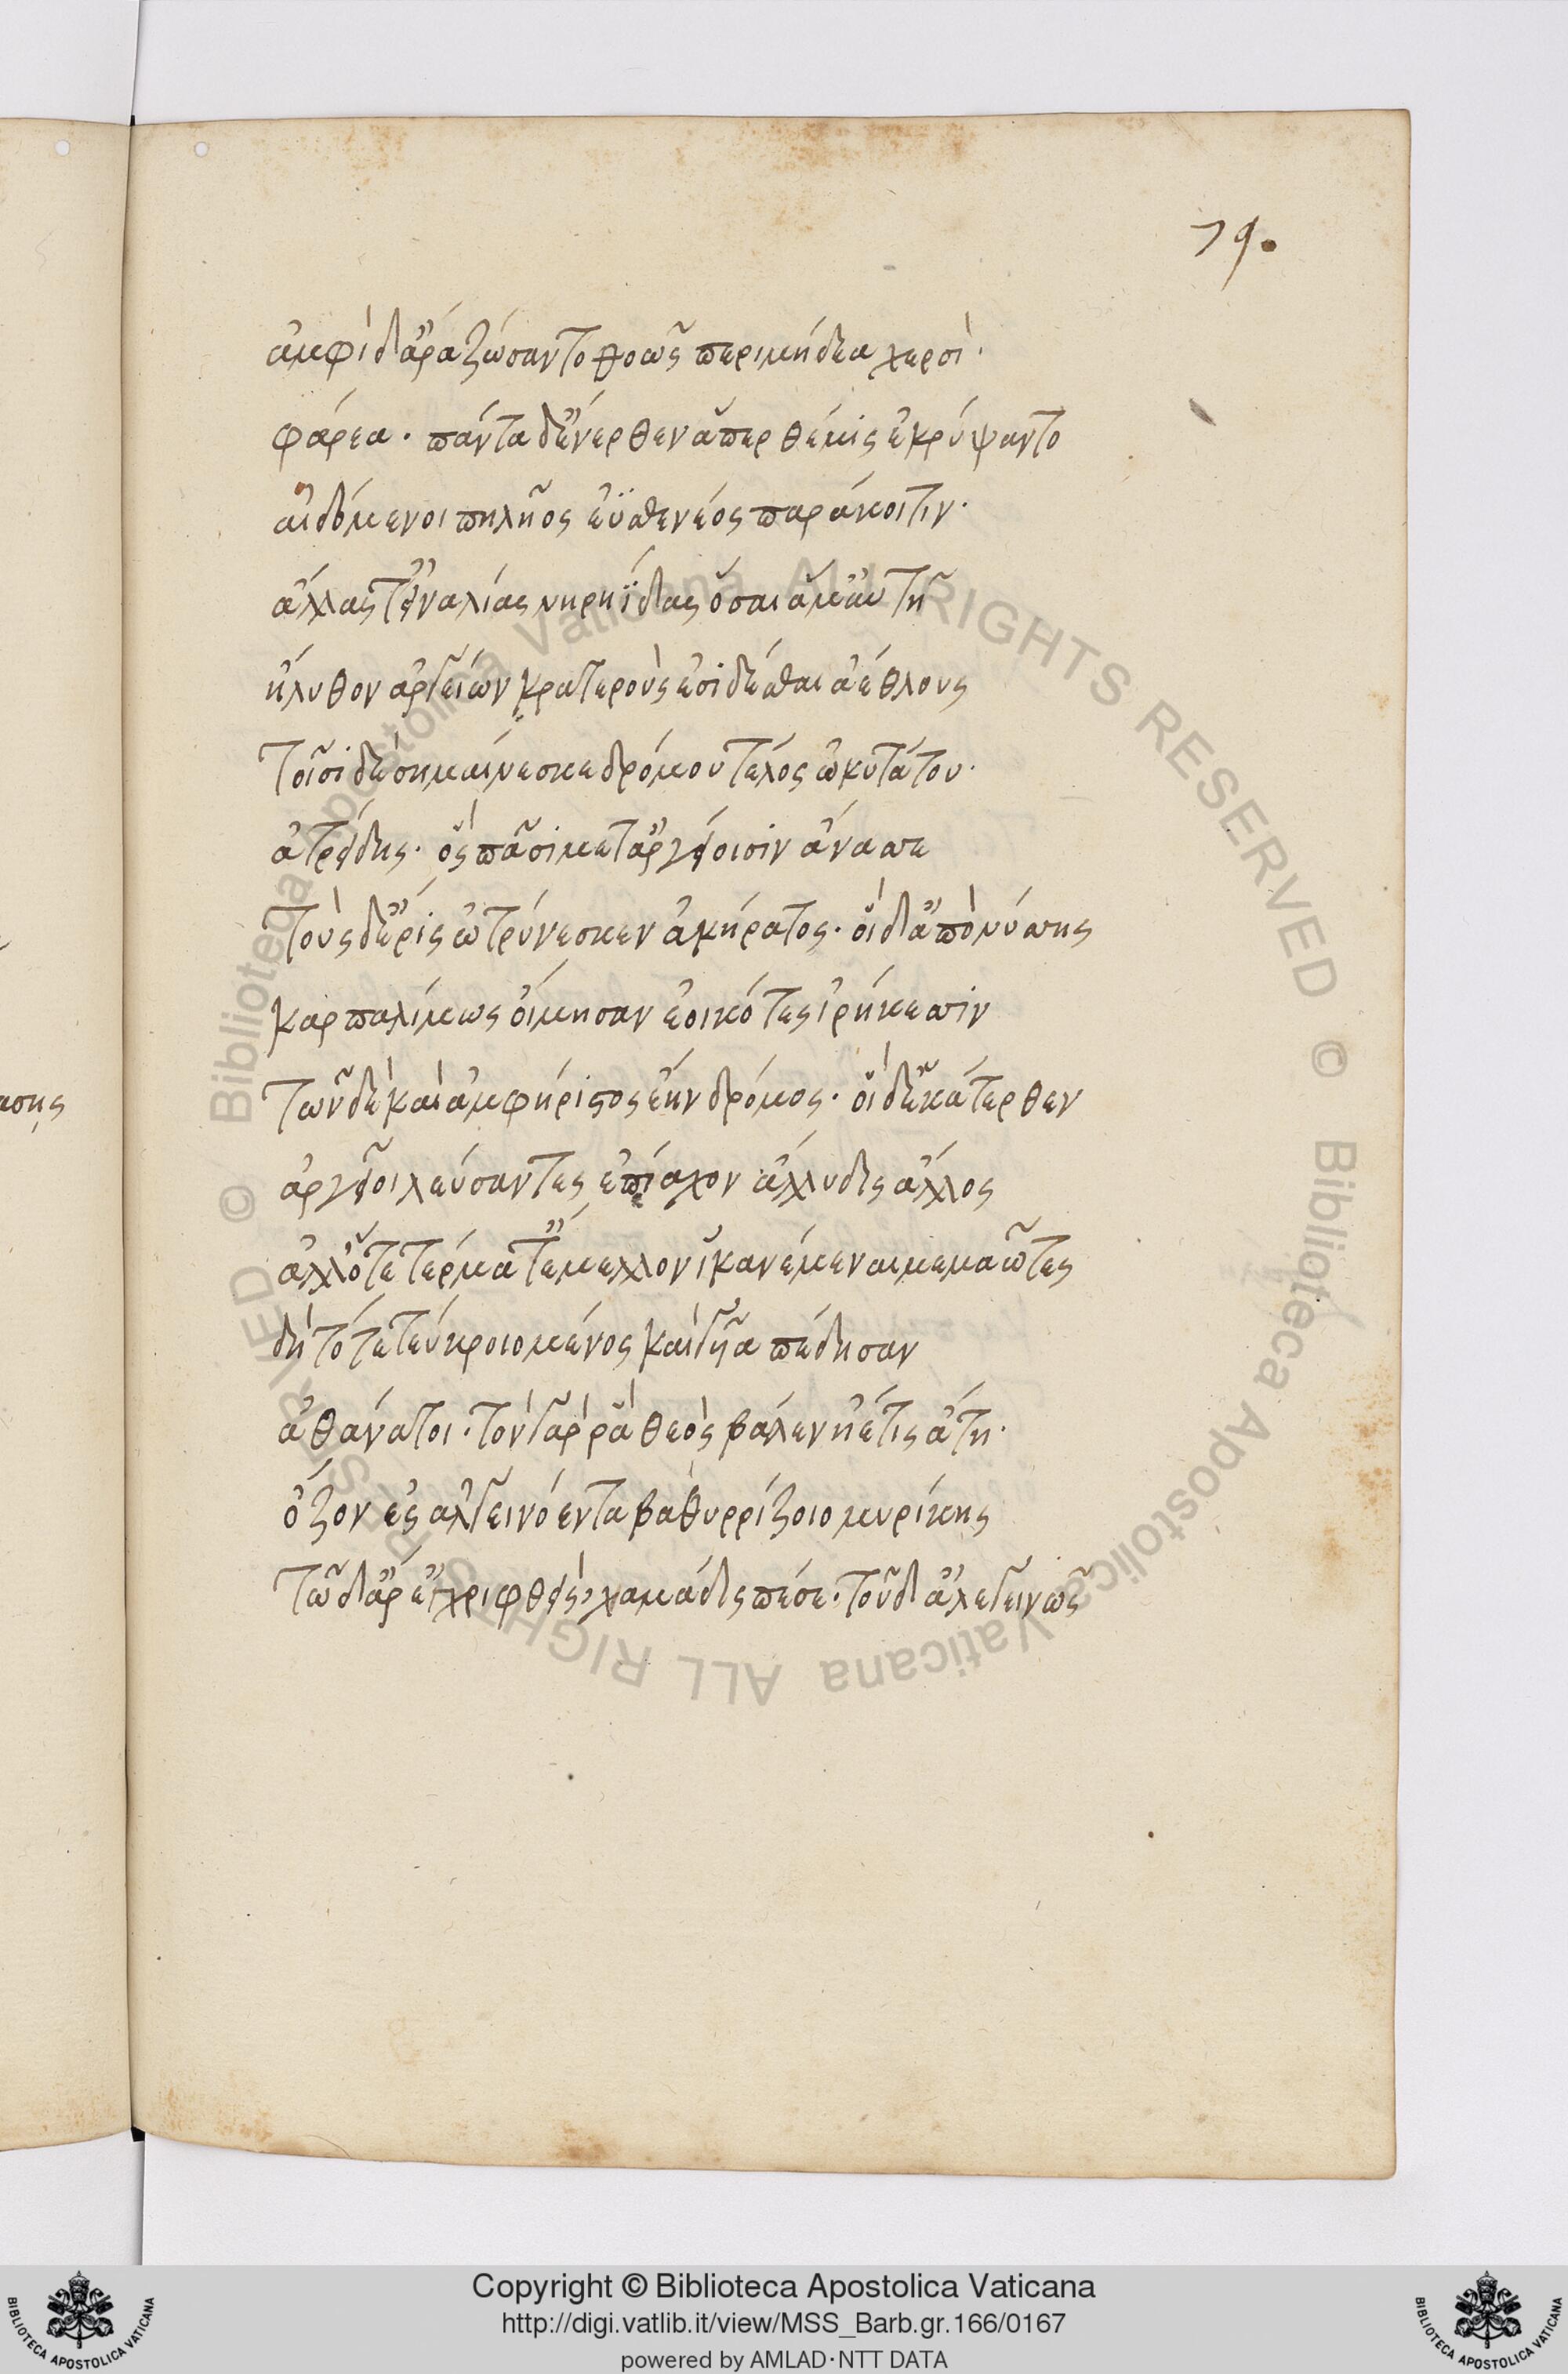 79.
ἀμφὶ δ' ἄρα ζώσαντο θοῶς περὶ μήδεα χερσὶ·
φάρεα· πάντα δ' ἔνερθεν ἅπερ θέμις ἐκρύψαντο
αἰδόμενοι πηλῆος ἐϋσθενέος παράκοιτιν·
ἄλλας τ' εἰναλίας νηρηΐδας ὅσαι ἅμ' αὐτῆ
ἤλυθον ἀργείων κρατεροὺς ἐσιδέσθαι ἀέθλους
τοῖσι δὲ σημαίνεσκε δρόμου τέλος ὠκυτάτου·
ἀτρείδης· ὃς πᾶσι μετ' ἀργείοισιν ἄνασσε
τοὺς δ' ἔρις ὠτρύνεσκεν ἀκήρατος· οἱ δ' ἀπὸ νύσσης
καρπαλίμως οἴμησαν ἐοικότες ἰρήκεσσιν
τῶν δὲ καὶ ἀμφήριστος ἔην δρόμος· οἱ δ' ἑκάτερθεν
ἀργεῖοι λεύσαντες ἐπίαχον ἄλλυδις ἄλλος
ἀλλ' ὅτε τέρματ' ἔμελλον ἱκανέμεναι μεμαῶτες
δὴ τότε τεύκροιο μένος καὶ γυῖα πέδησαν
ἀθάνατοι· τὸν γάρ ῥα θεὸς βάλεν ἠέ τις ἄτη·
ὄζον ἐς ἀλγεινόεντα βαθυρρίζοιο μυρίκης
τῶ δ' ἄρ' ἐγχριφθεὶς χαμάδις πέσε· τοῦ δ' ἀλεγεινῶς
ασης
Copyright © Biblioteca Apostolica Vaticana
http://digi.vatlib.it/view/MSS_Barb.gr.166/0167
powered by AMLAD·NTT DATA
BIBLIOTECA APOSTOLICA VATICANA
BIBLIOTECA APOSTOLICA VATICANA
© Biblioteca Apostolica Vaticana ALL RIGHTS RESERVED © Biblioteca Apostolica Vaticana ALL RIGHTS RESERVED